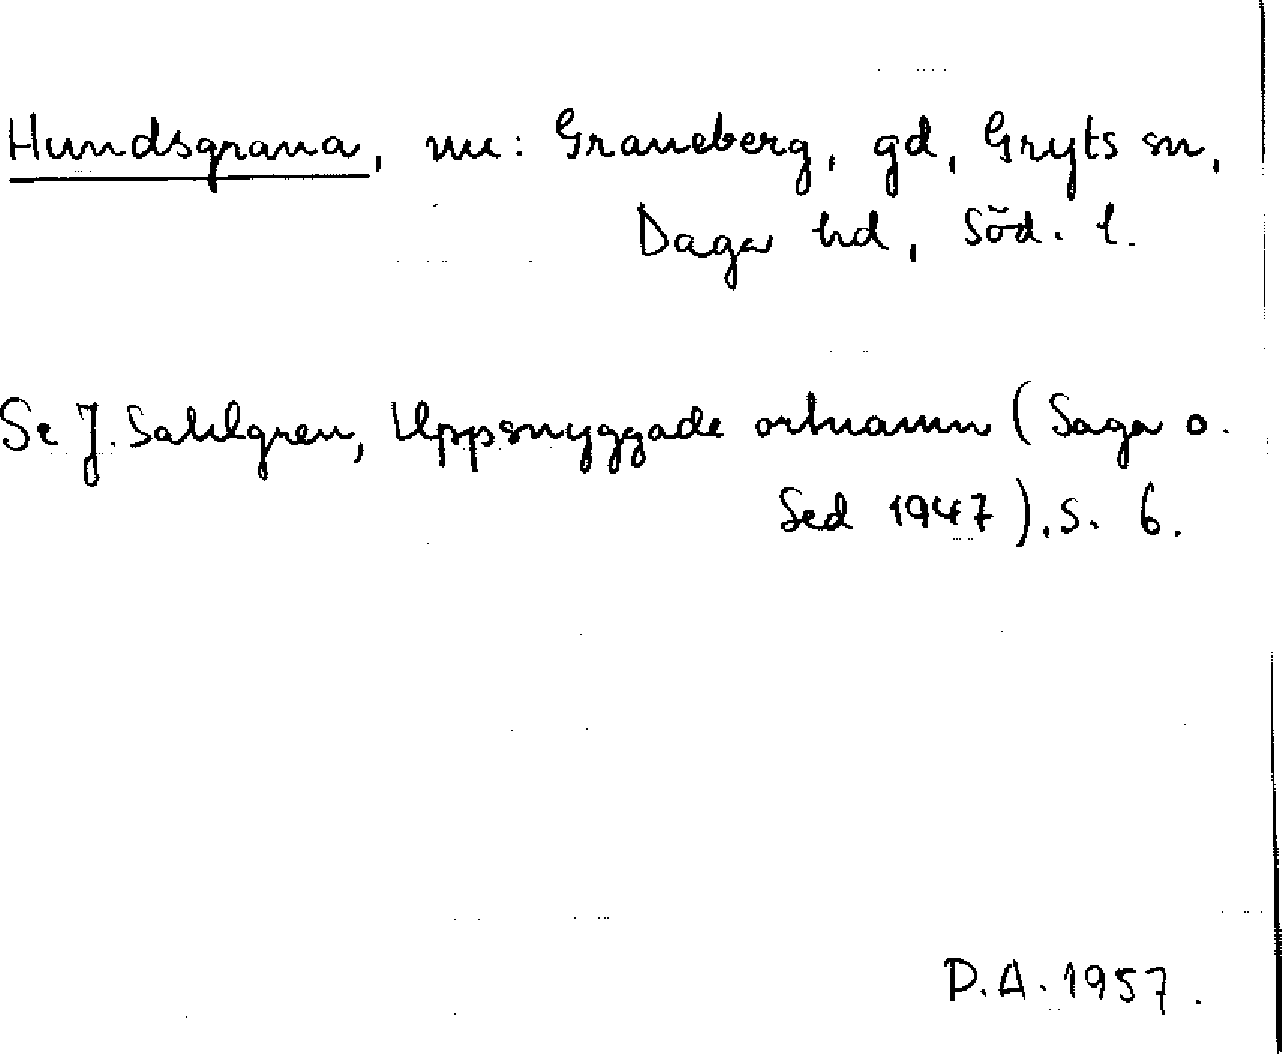 Hundsgrana, nu: Graneberg, gd, Gryts sn,
Daga hd, Söd. l.
Se J. Sahlgren, Uppsnyggade ortnamn (Saga o.
Sed 1947), s. 6.
D.A. 1957.